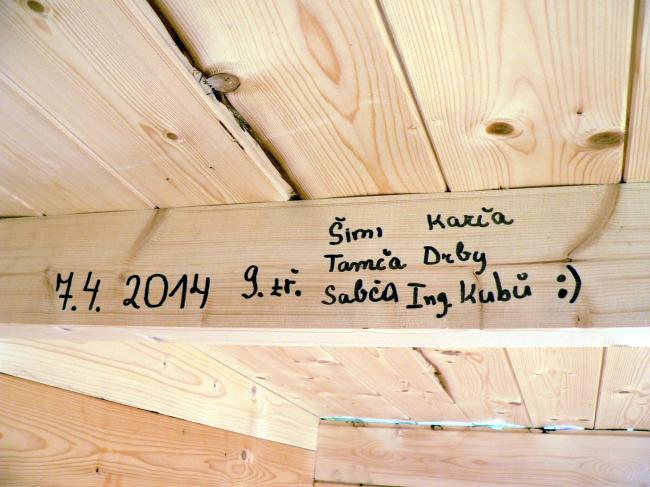 Šimi Karča
Tamča Drby
7.4. 2014 9. tř. Sabča Ing Kubů :)